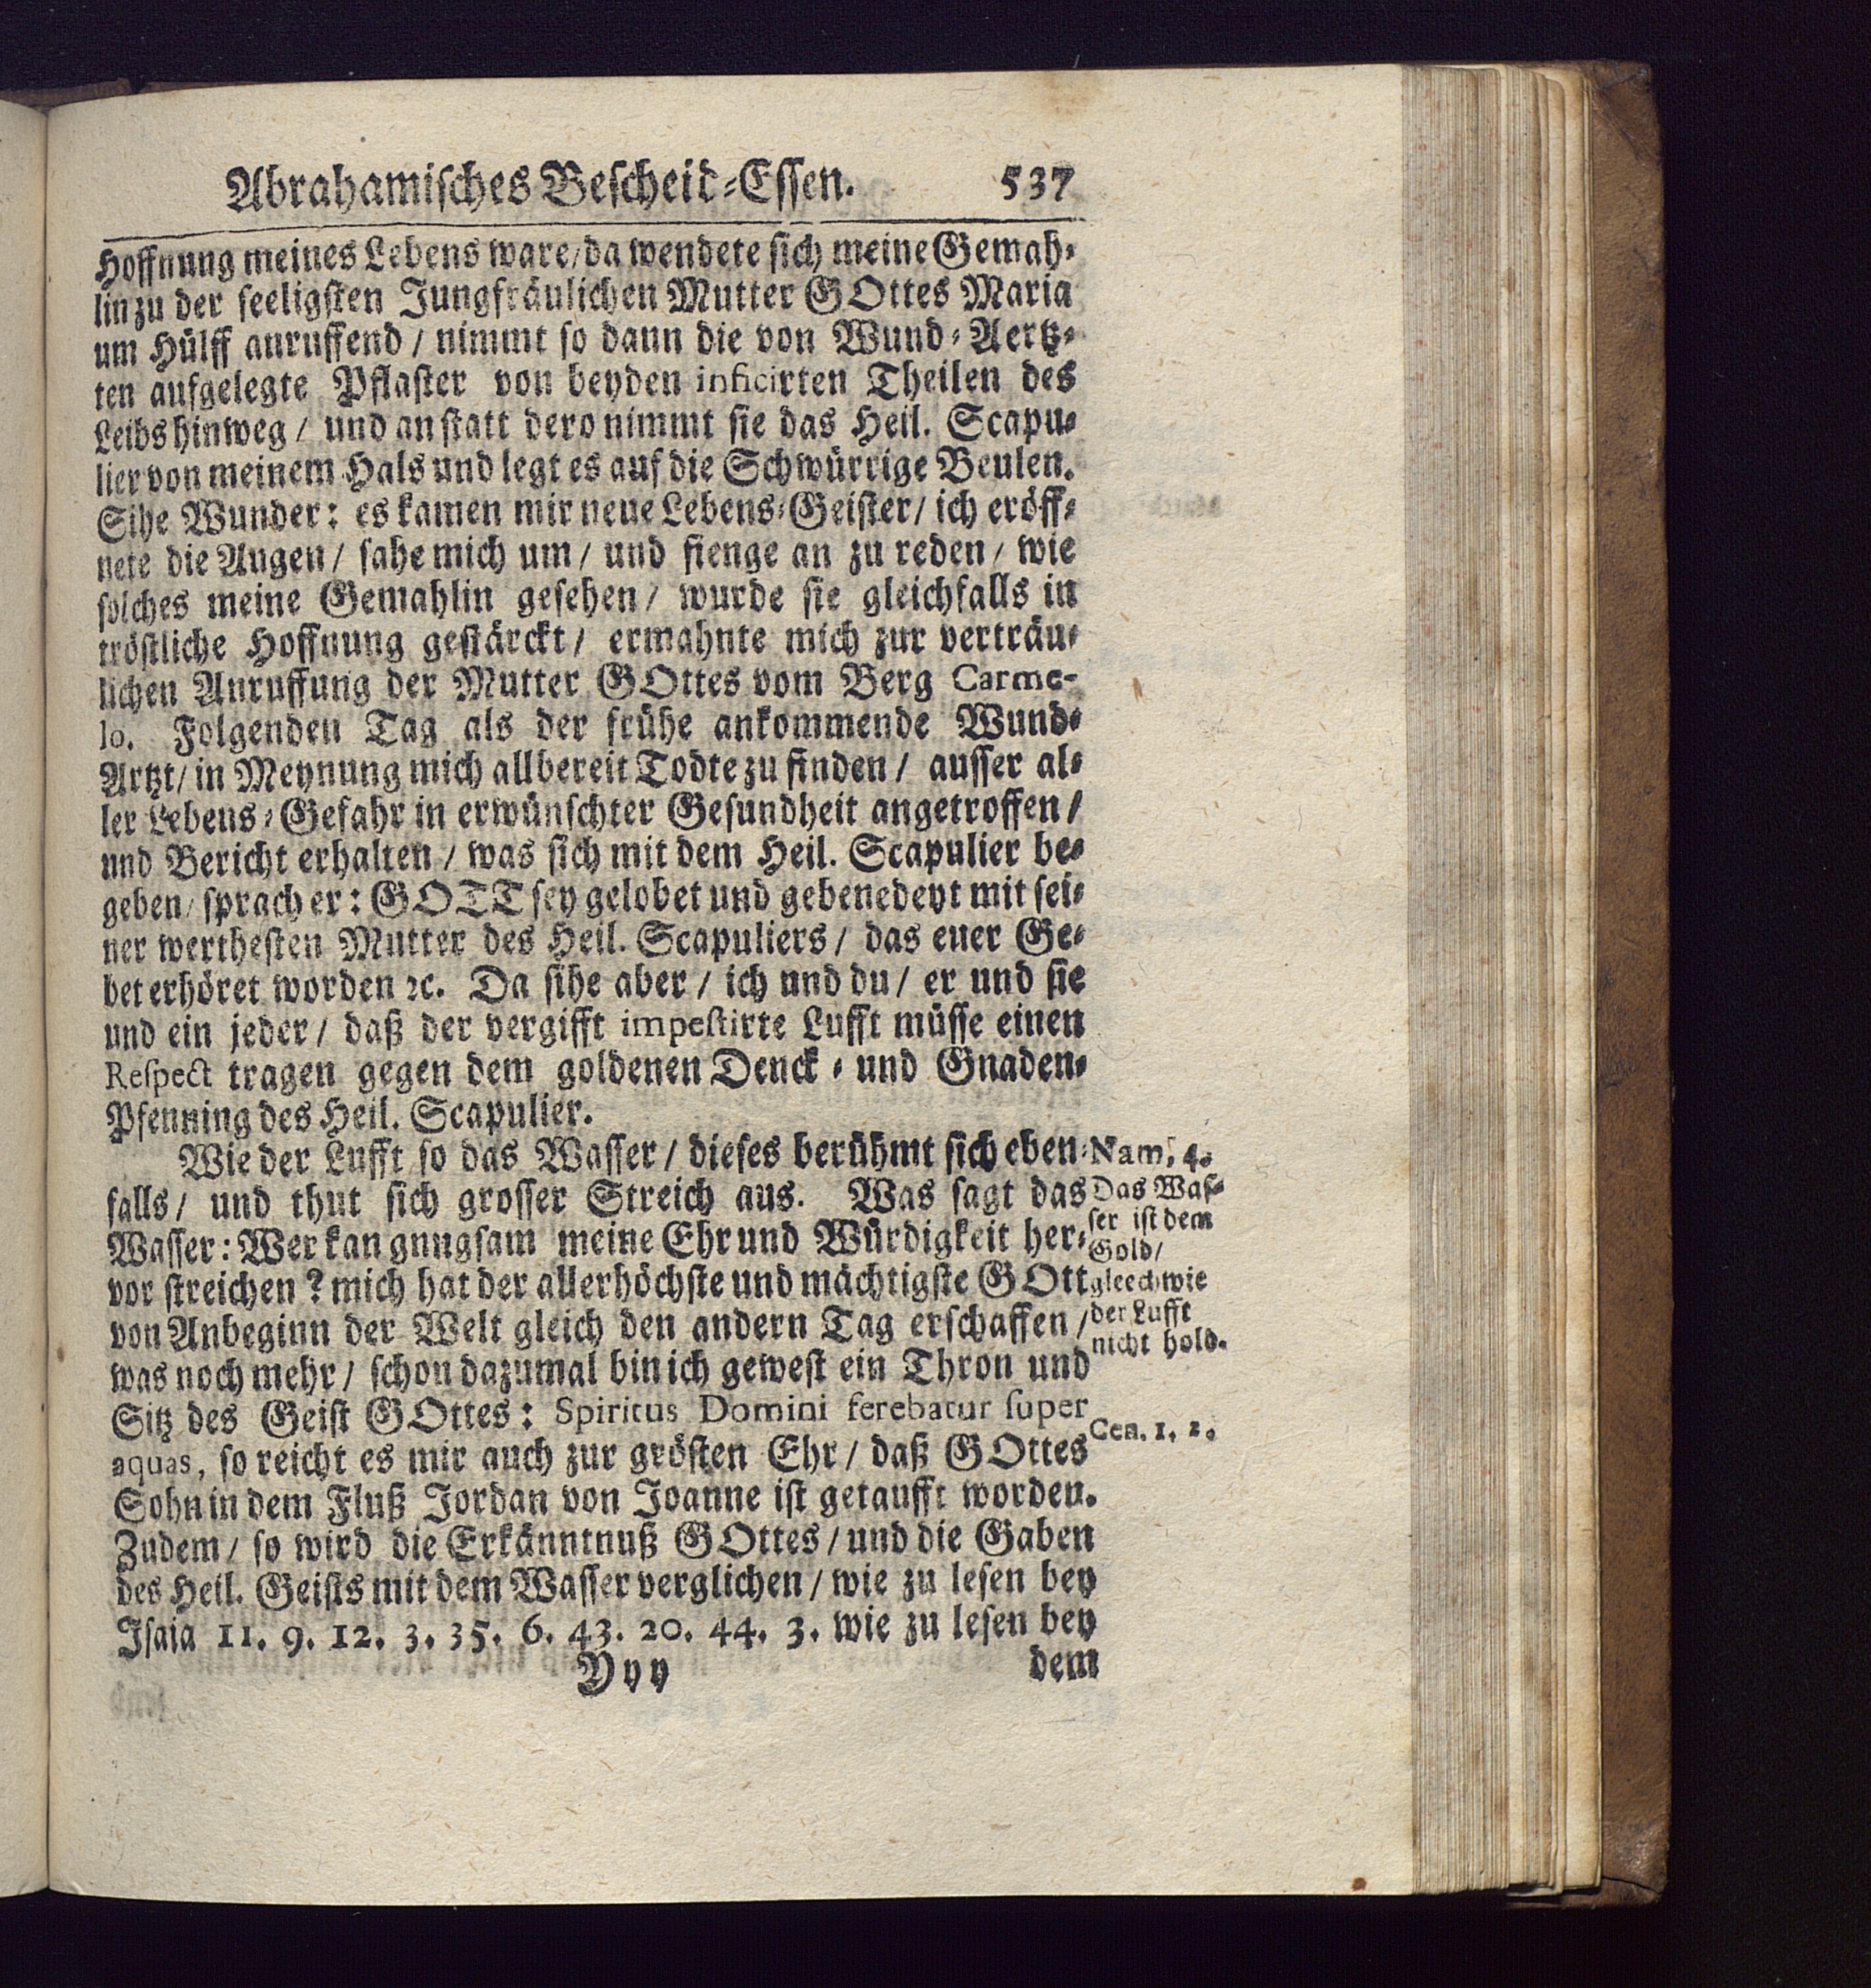 Abrahamisches Bescheid-Essen. 537
Hoffnung meines Lebens ware/ da wendete sich meine Gemah-
lin zu der seeligsten Jungfräulichen Mutter GOttes Maria
um Hülff anruffend / nimmt so dann die von Wund-Aertz-
ten aufgelegte Pflaster von beyden inficirten Theilen des
Leibs hinweg / und an statt dero nimmt sie das Heil. Scapu-
lier von meinem Hals und legt es auf die Schwürrige Beulen.
Sihe Wunder: es kamen mir neue Lebens-Geister/ ich eröff-
nete die Augen / sahe mich um / und fienge an zu reden / wie
solches meine Gemahlin gesehen / wurde sie gleichfalls in
tröstliche Hoffnung gestärckt / ermahnte mich zur verträu-
lichen Anruffung der Mutter GOttes vom Berg Carme-
lo. Folgenden Tag als der frühe ankommende Wund-
Artzt/ in Meynung mich allbereit Todte zu finden / ausser al-
ler Lebens-Gefahr in erwünschter Gesundheit angetroffen /
und Bericht erhalten / was sich mit dem Heil. Scapulier be-
geben/ sprach er: GOTT sey gelobet und gebenedeyt mit sei-
ner werthesten Mutter des Heil. Scapuliers / das euer Ge-
bet erhöret worden ꝛc. Da sihe aber / ich und du / er und sie
und ein jeder / daß der vergifft impestirte Lufft müsse einen
Respect tragen gegen dem goldenen Denck- und Gnaden-
Pfenning des Heil. Scapulier.
Wie der Lufft so das Wasser / dieses berühmt sich eben-
falls / und thut sich grosser Streich aus. Was sagt das
Wasser: Wer kan gnugsam meine Ehr und Würdigkeit her-
vor streichen? mich hat der allerhöchste und mächtigste GOtt
von Anbeginn der Welt gleich den andern Tag erschaffen /
was noch mehr / schon dazumal bin ich gewest ein Thron und
Sitz des Geist GOttes: Spiritus Domini ferebatur super
aquas, so reicht es mir auch zur grösten Ehr / daß GOttes
Sohn in dem Fluß Jordan von Joanne ist getaufft worden.
Zudem / so wird die Erkänntnuß GOttes / und die Gaben
des Heil. Geists mit dem Wasser verglichen / wie zu lesen bey
Isaia 11. 9. 12. 3. 35. 6. 43. 20. 44. 3. wie zu lesen bey
Yyy dem
Nam. 4.
Das Was-
ser ist dem
Gold /
gleechwie
der Lufft
nicht hold.
Gen. 1. 2.